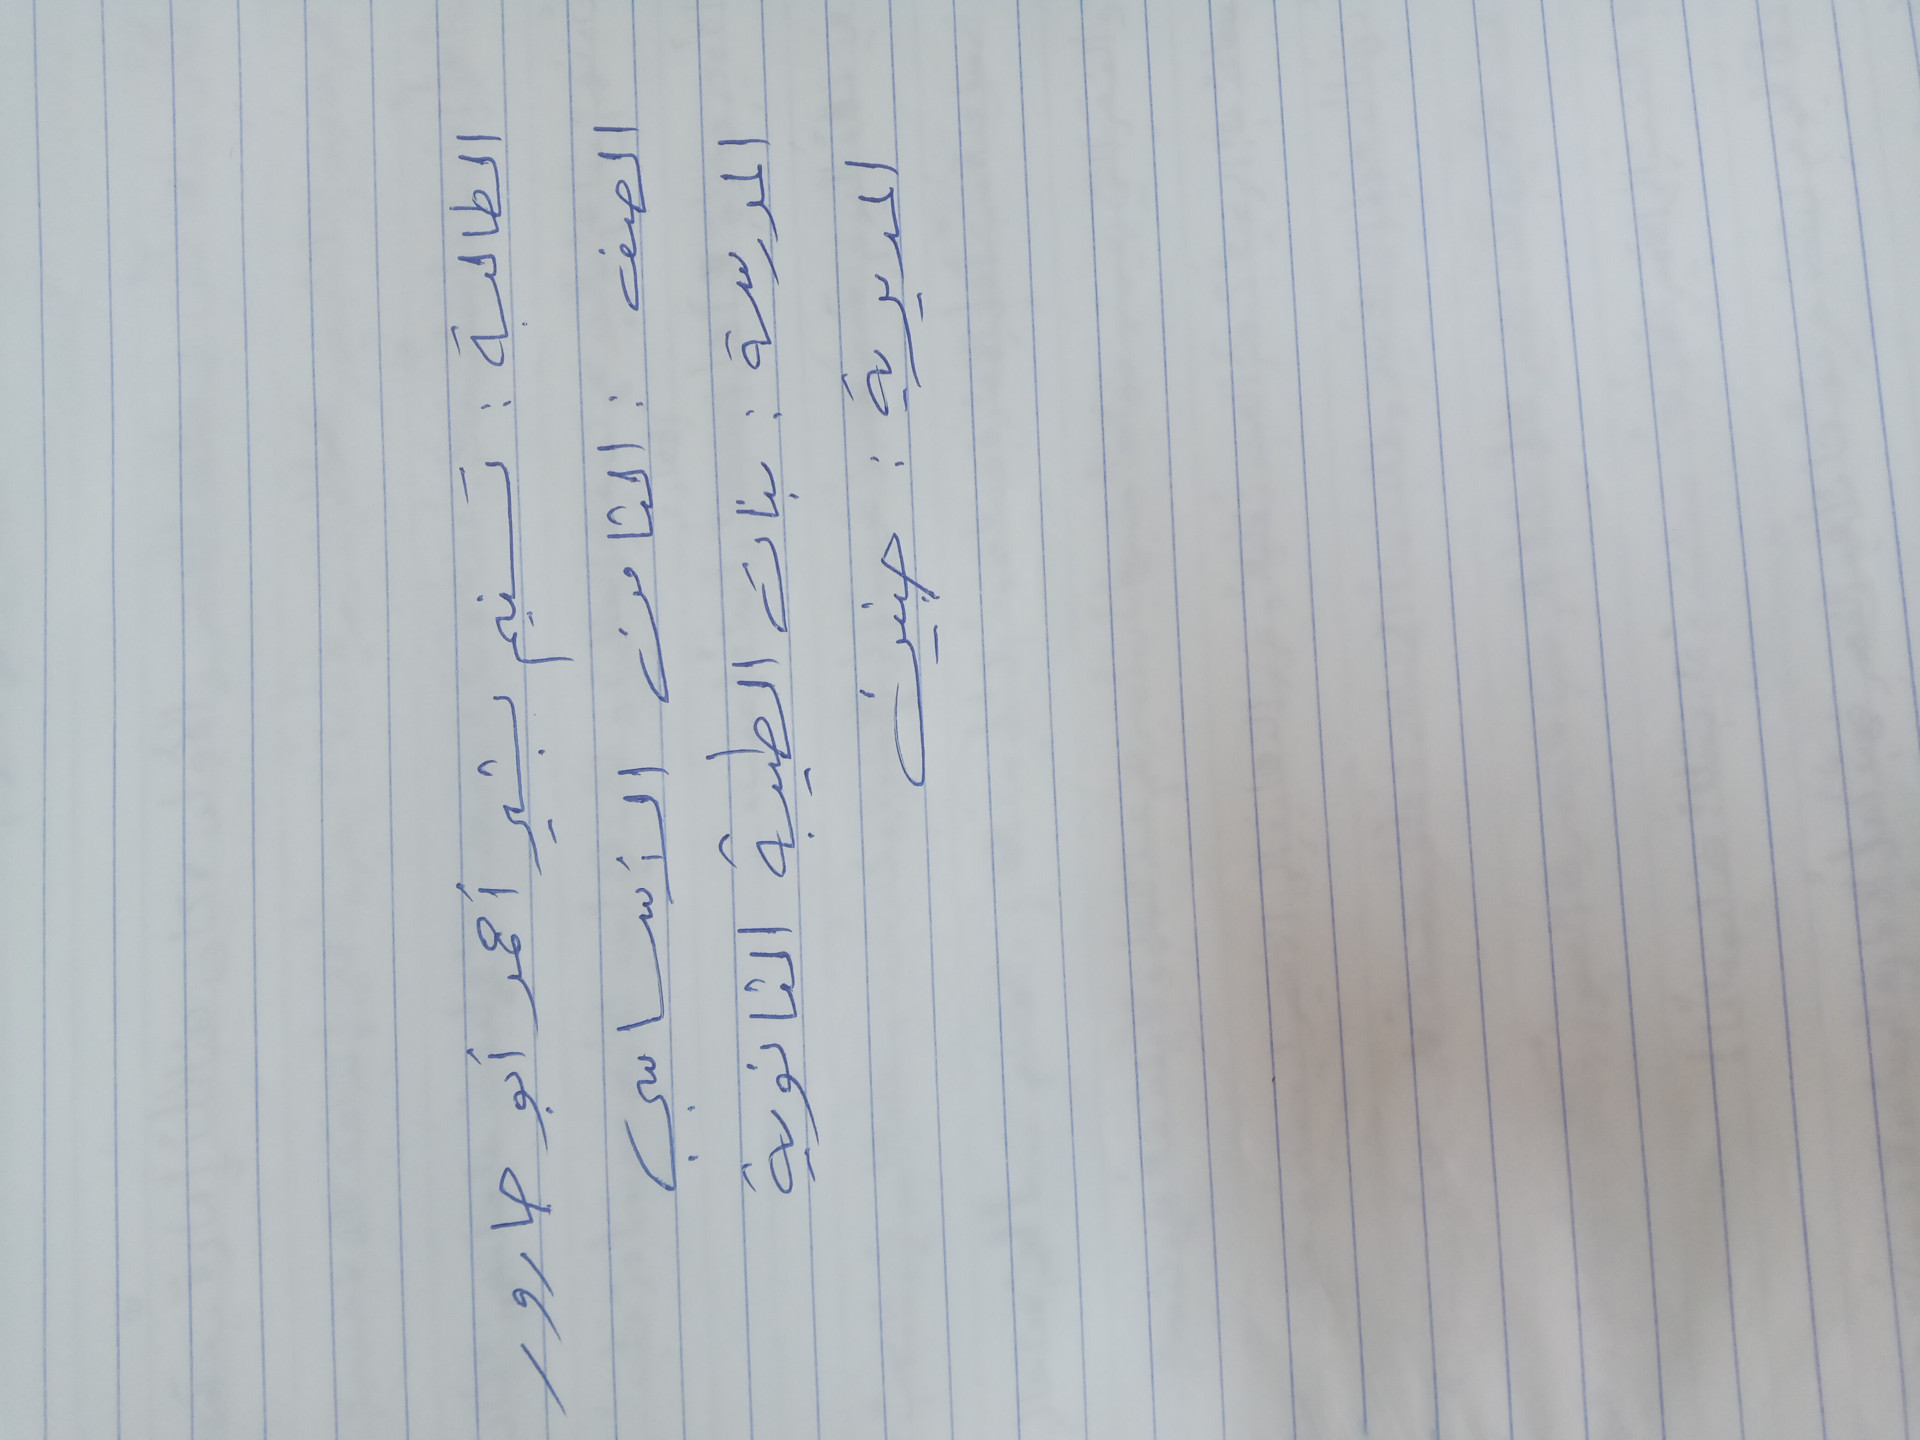 الطالبة : تسنيم بشير أحمد أبو جارور
الصف : الثامن الأساسي
المدرسة : بنات الطيبة الثانوية
المديرية : جنين